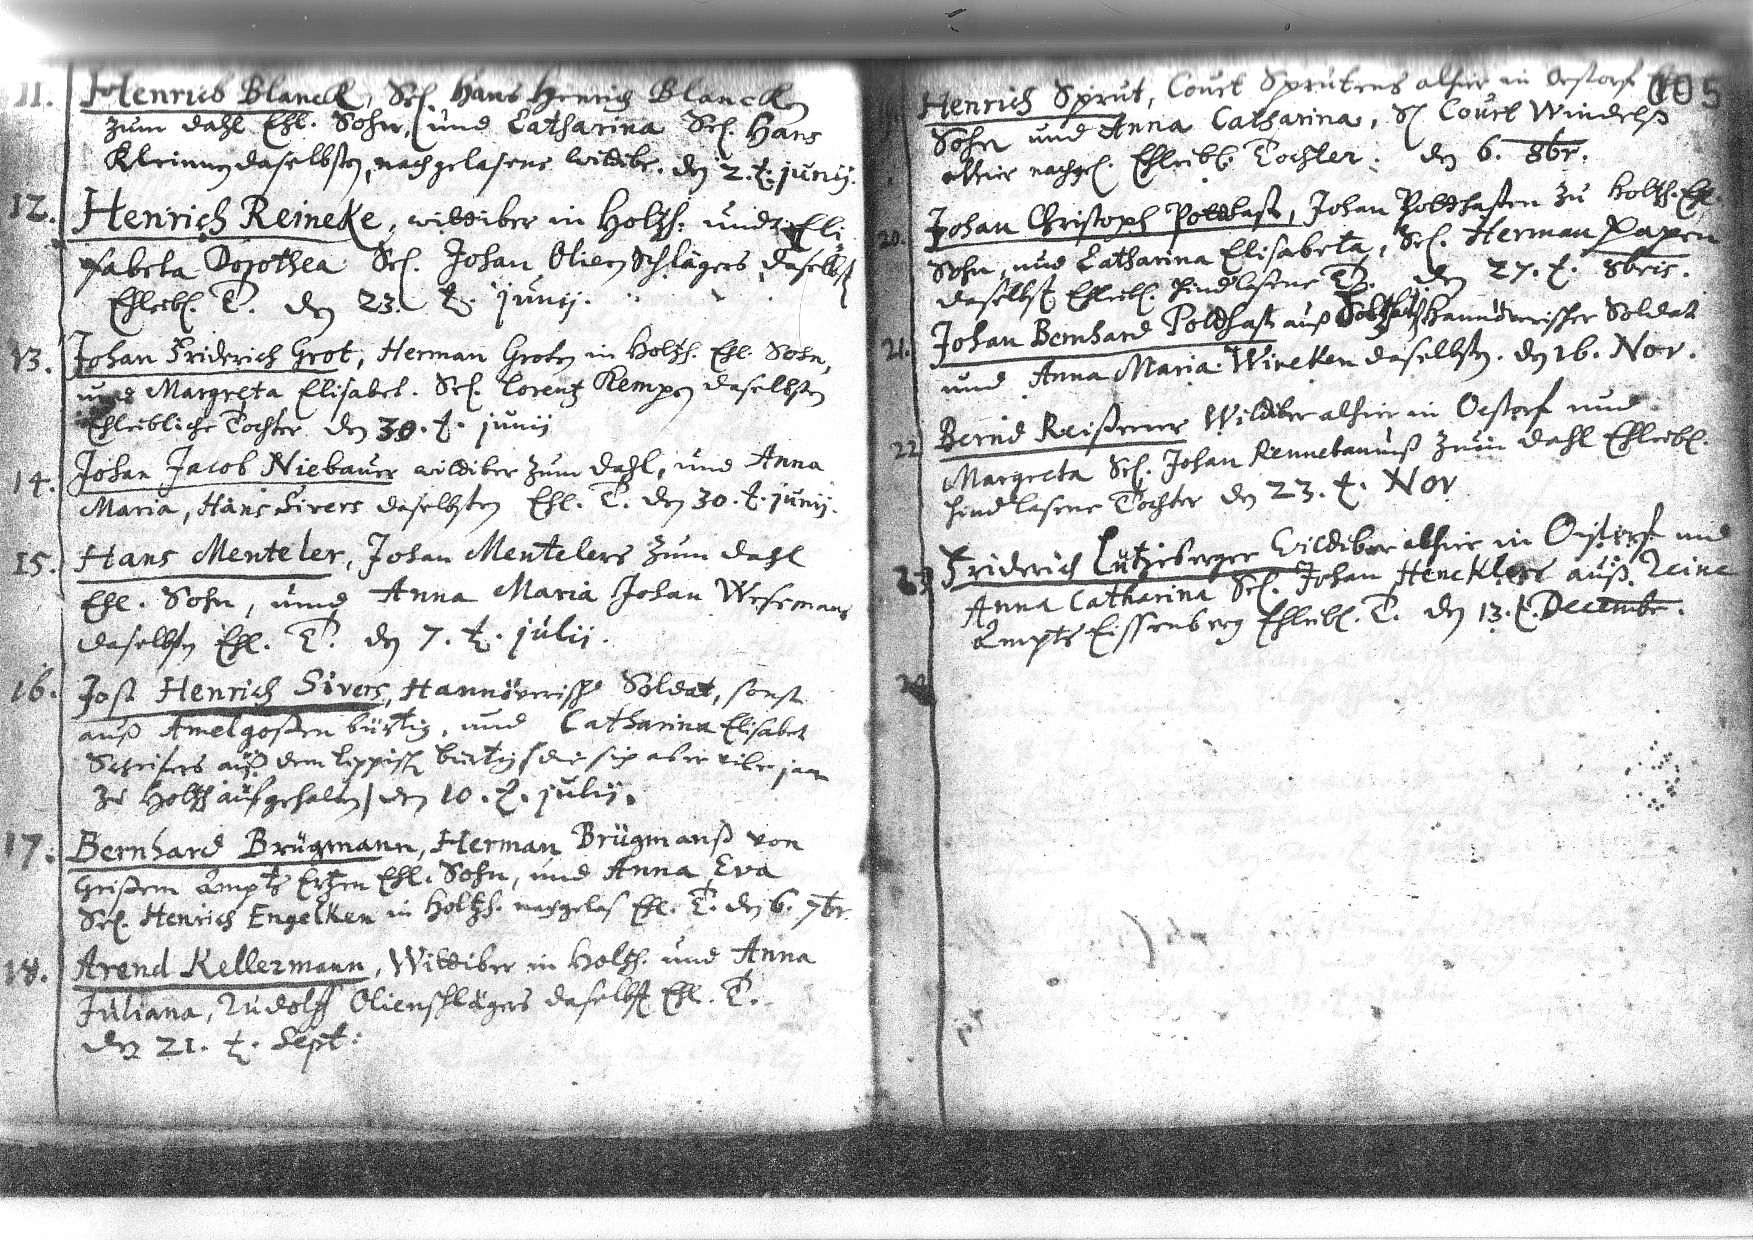 11. Henrich Blanck, Sel. Hans Henrich Blancken
zum dahl Ehl. Sohn, und Catharina Sel. Hans
Kleinen daselbsten, nachgelasene wittibe. den 2. t. junij.
12. Henrich Reineke, wittiber in Holtzh. und Eli
sabeta Dorothea Sel. Johan Olien Schlägers daselbst
Ehleibl. T. den 23. t. junij.
13. Johan Friderich Grot, Herman Groten in Holtzh. Ehl. Sohn,
und Margreta Elisabet. Sel. Lorentz Kempen daselbsten
Ehleibliche Tochter den 30. t. junij
14. Johan Jacob Niebauer wittiber zum dahl, und Anna
Maria, Hans Sivers daselbsten Ehl. T. den 30. t. junij.
15. Hans Menteler, Johan Mentelers zum dahl
Ehl. Sohn, und Anna Maria Johan Wesemans
daselbsten Ehl. T. den 7. t. julij.
16. Jost Henrich Sivers, Hannöverische Soldat, sonst
auß Amelgoßen bürtig, und Catharina Elisabet
auß dem Lippisch bürtig (die sich aber viele jaar
zu Holtzh aufgehalten) den 10. t. julij.
17. Bernhard Brügmann, Herman Brügmanß von
Grißem Ampts Ertzen Ehl. Sohn, und Anna Eva
Sel. Henrich Engelken in Holtzh. nachgelas Ehl. T. den 6. 7br.
18. Arend Kellermann, Wittiber in Holtzh. und Anna
Juliana, Rudolff Olienschlägers daselbst Ehl. T.
den 21. t. Sept:
105
Henrich Sprut, Court Sprutens alhier in Oestorf
Sohn und Anna Catharina, Sl Court Windelß
alhier nachgel. Ehleibl. Tochter. den 6. 8br.
20. Johan Christoph Poldhast, Johan Poldhasten zu Holtzh. Ehl.
Sohn, und Catharina Elisabeta, Sel. Herman Papen
daselbst Ehleibl. hindlasene T. den 27. t. 8bris.
21. Johan Bernhard Poldhast auß Holtzh. Hannöverischer Soldat
und Anna Maria Wineken daselbsten. den 16. Nov.
22 Bernd Reißener Wittiber alhier in Oestorf und
Margreta Sel. Johan Rennebaumß zum dahl Ehleibl.
hindlasene Tochter den 23. t. Nov
23 Friderich Lutzeberger Wittiber alhier in Oestorf und
Anna Catharina Sel. Johan Hencklers auß Reine
Ampts Eissenberg Ehleibl. T. den 13. t. Decembr.